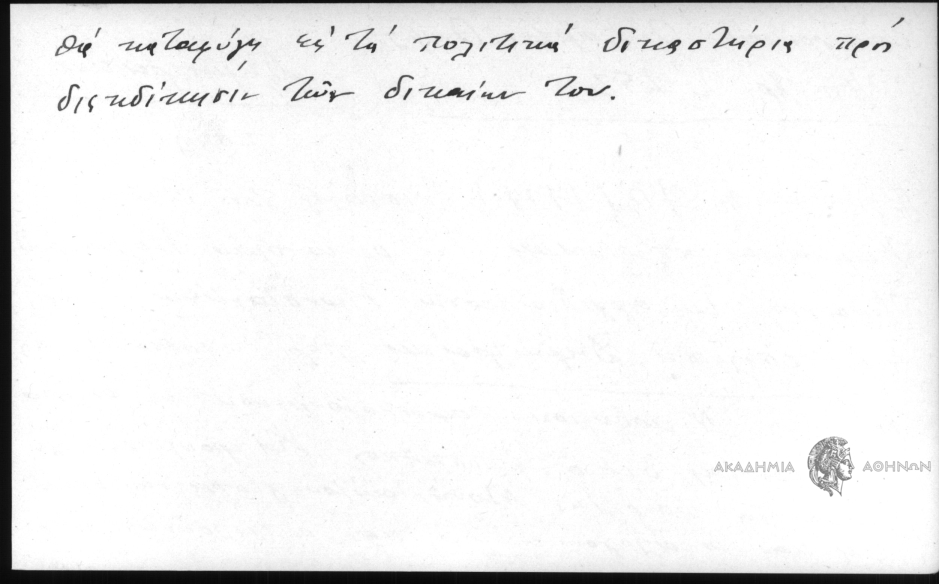 θά καταφύγη εἰς τά πολιτικά δικαστήρια πρός
διεκδίκησιν τῶν δικαίων του.
ΑΚΑΔΗΜΙΑ ΑΘΗΝΩΝ